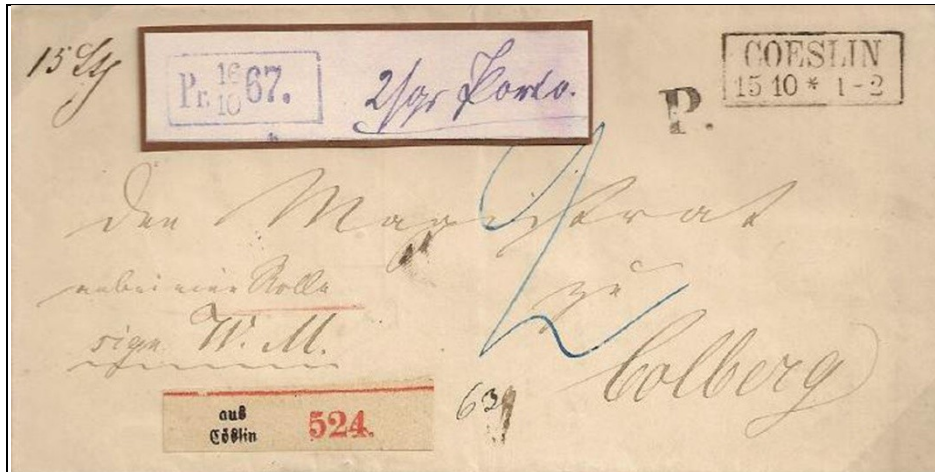 15
Pr. 16/10 67.
2 sgr Porto.
COESLIN
15 10 * 1-2
P.
den Magistrat
2
nebei eine Rolle
zu
sign. W. M.
Colberg
aus
Cöslin
524.